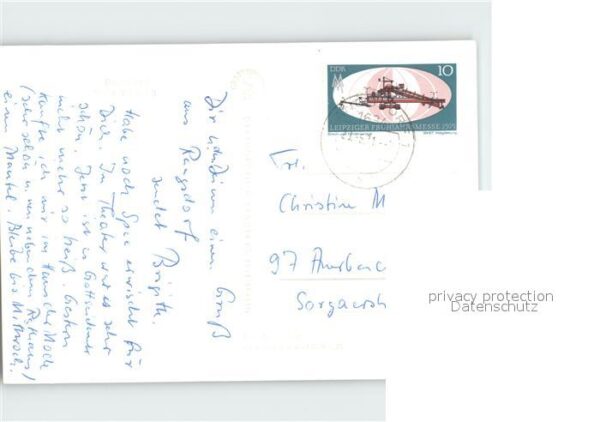 DDR
10
LEIPZIGER FRÜHJAHRSMESSE 1971
Dir einen Gruß
aus Rangsdorf
sendet Brigitte.
Habe noch erwischt für
Dich. Im Theater war es sehr
schön. Jetzt ist es Gottseidank
nicht mehr so heiß. Gestern
kaufte ich mir im Haus der Mode
(sehr schön neben dem Rathaus)
einen Mantel. Bleibe bis Mittwoch.
Fr.
Christine M
97 Auerbac
Sorgaerst
privacy protection
Datenschutz